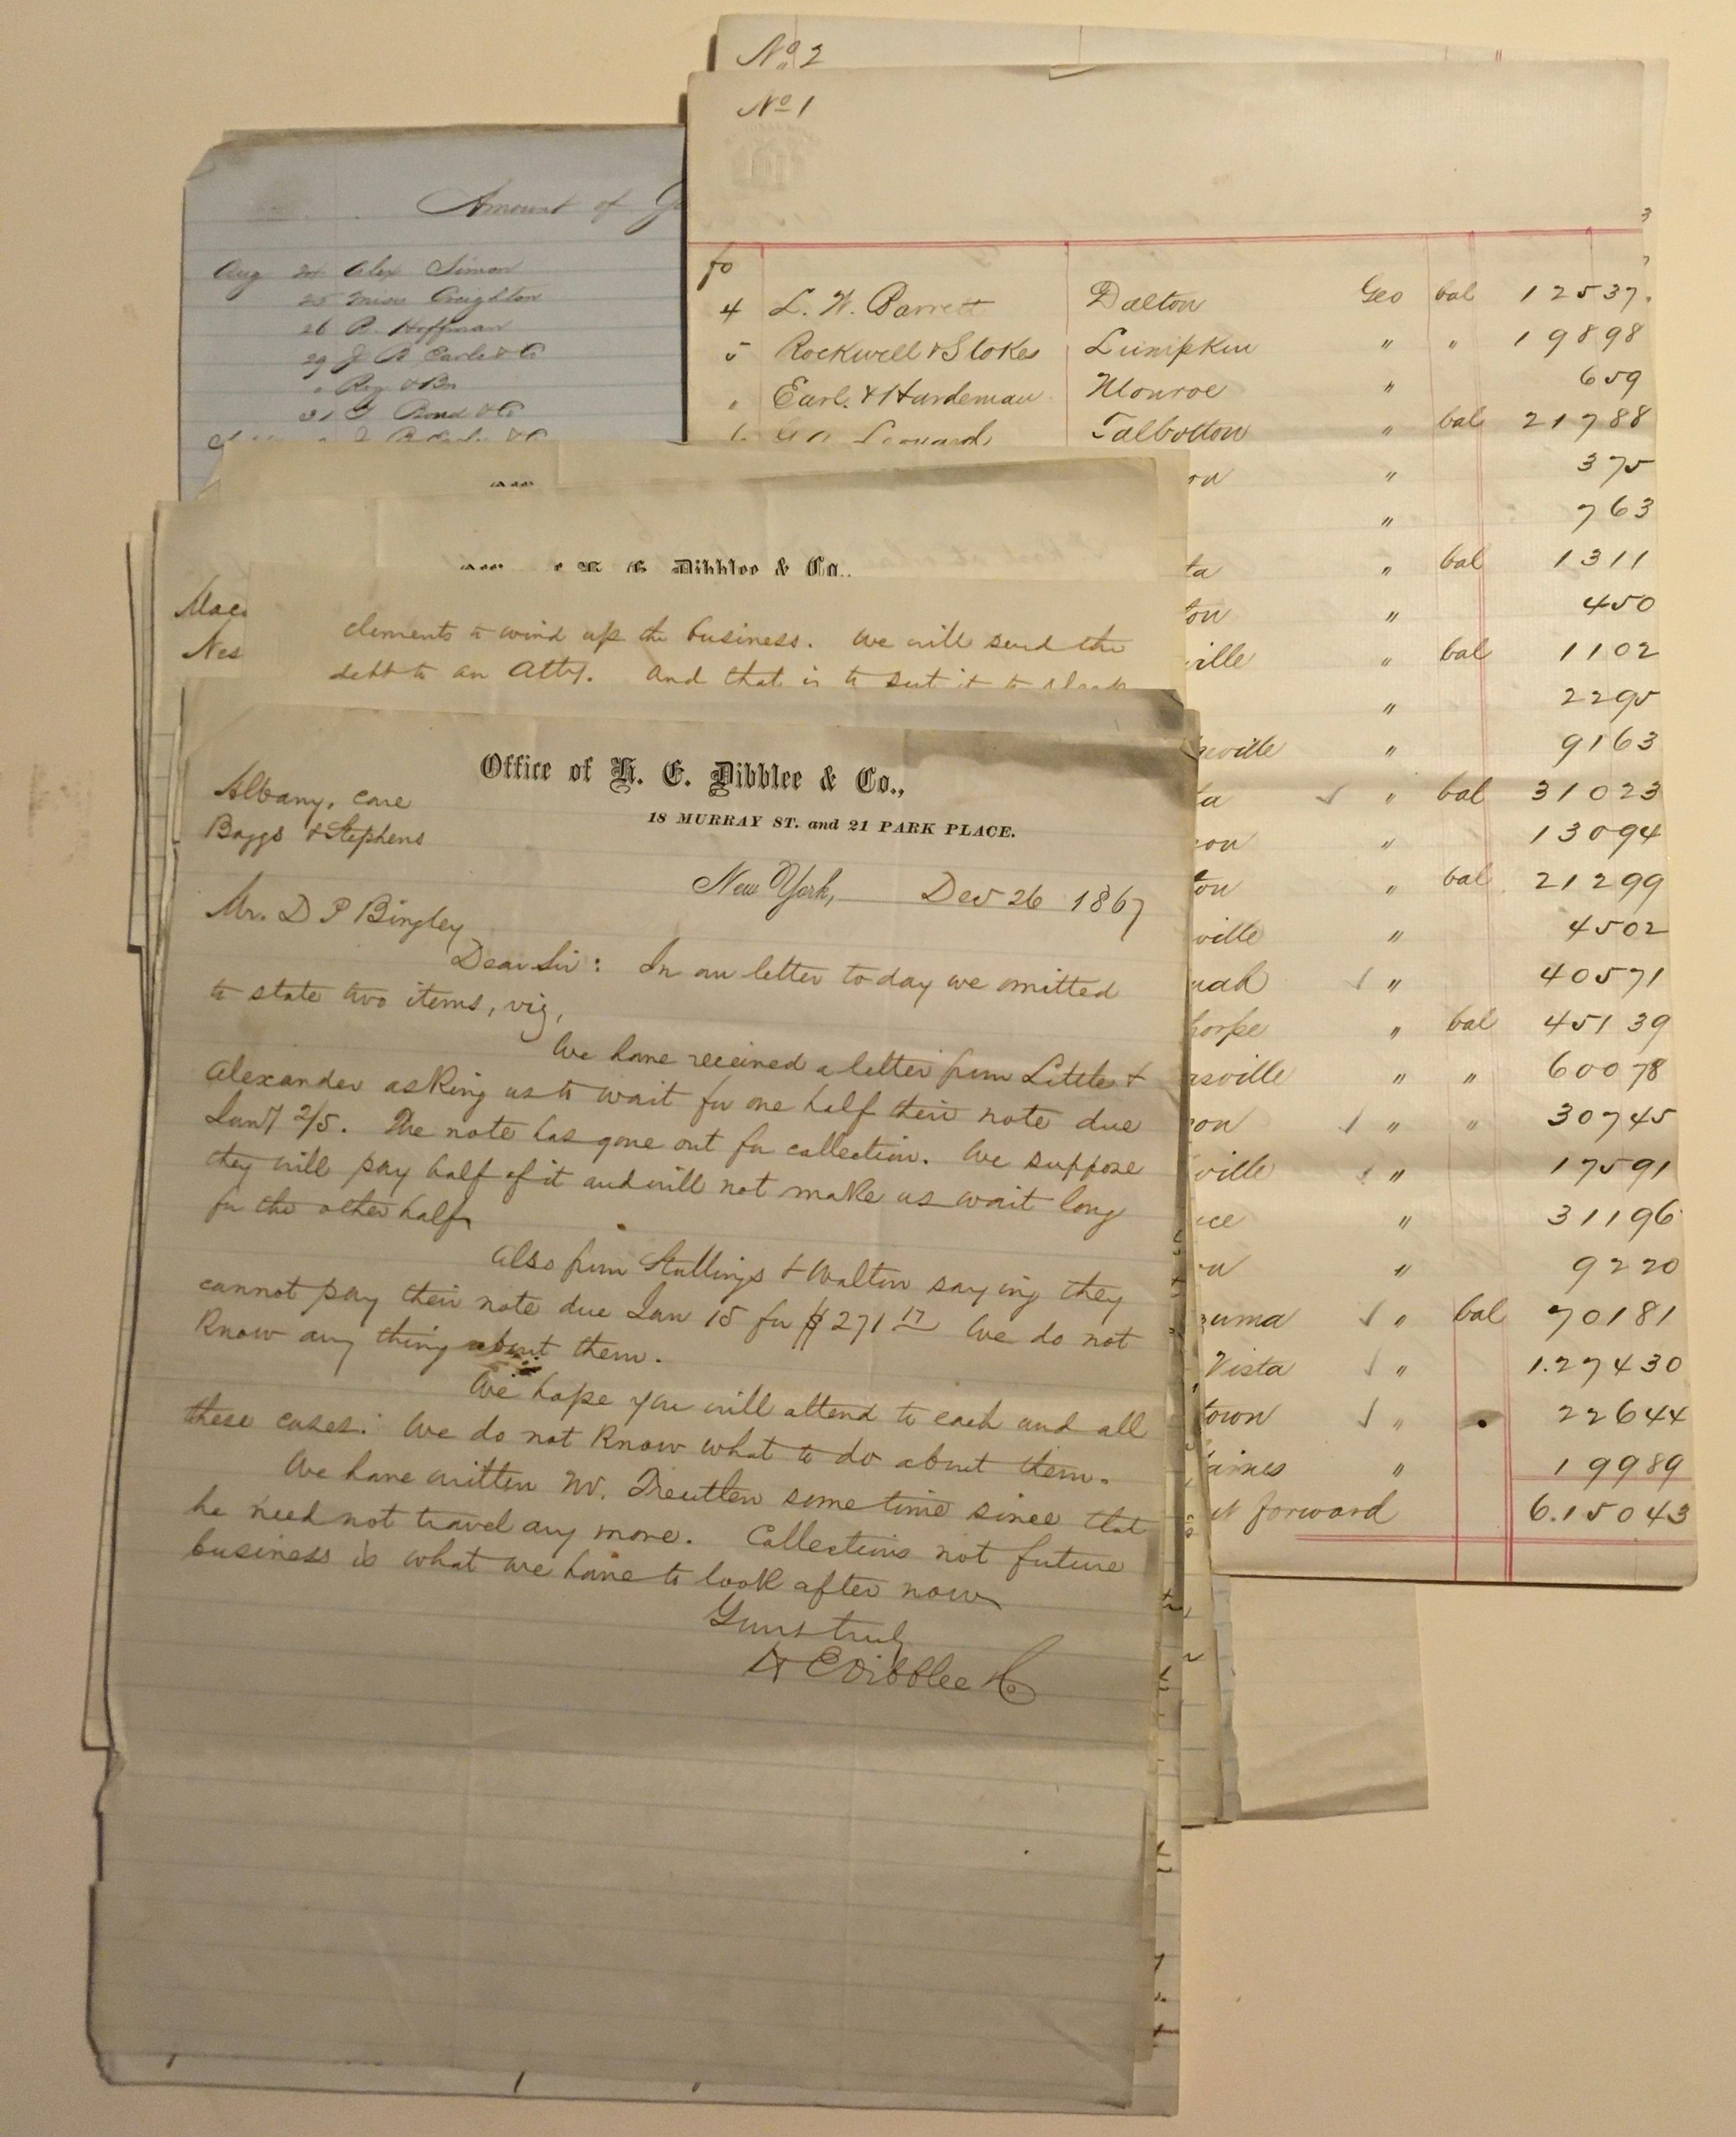 No 2
No 1
Amount of
Aug 24 Alex Simon
25 Miss Creighton
26 R. Hoffman
29 J B Earle & Co
" Roy & Bro
31 J Bond & Co
fo
4 L. W. Barrett Dalton Geo bal 12537.
5 Rockwell & Stokes Lumpkin " " 19898
" Earl. & Hardeman Monroe " 659
Leonard Talbotton " bal 21788
on " 375
" 763
ta " bal 1311
ton " 450
ville " bal 1102
" 2295
eville " 9163
ta " bal 31023
con " 13094
ton " bal 21299
ville " 4502
nah " 40571
horpe " bal 45139
asville " " 60078
con " " 30745
ville " 17591
ce " 31196
n " 9220
zuma " bal 70181
Vista " 1.27430
town " 22644
aines " 19989
forward 6.15043
E. Dibblee & Co.,
clements to wind up the business. We will send the
debt to an Atty. And that is to put it to
Office of H. E. Dibblee & Co.,
18 MURRAY ST. and 21 PARK PLACE.
Albany, care
Baggs & Stephens
New York, Dec 26 1867
Mr. D P Bingley
Dear Sir: In our letter today we omitted
to state two items, viz,
We have received a letter from Little &
Alexander asking us to wait for one half their note due
Jany 2/5. The note has gone out for collection. We suppose
they will pay half of it and will not make us wait long
for the other half
Also from Stallings & Walton saying they
cannot pay their note due Jan 15 for $271 17 We do not
Know any thing about them.
We hope you will attend to each and all
these cases. We do not Know what to do about them.
We have written Mr. Treutlen some time since that
he need not travel any more. Collections not future
business is what we have to look after now
Yours truly
H E Dibblee Co